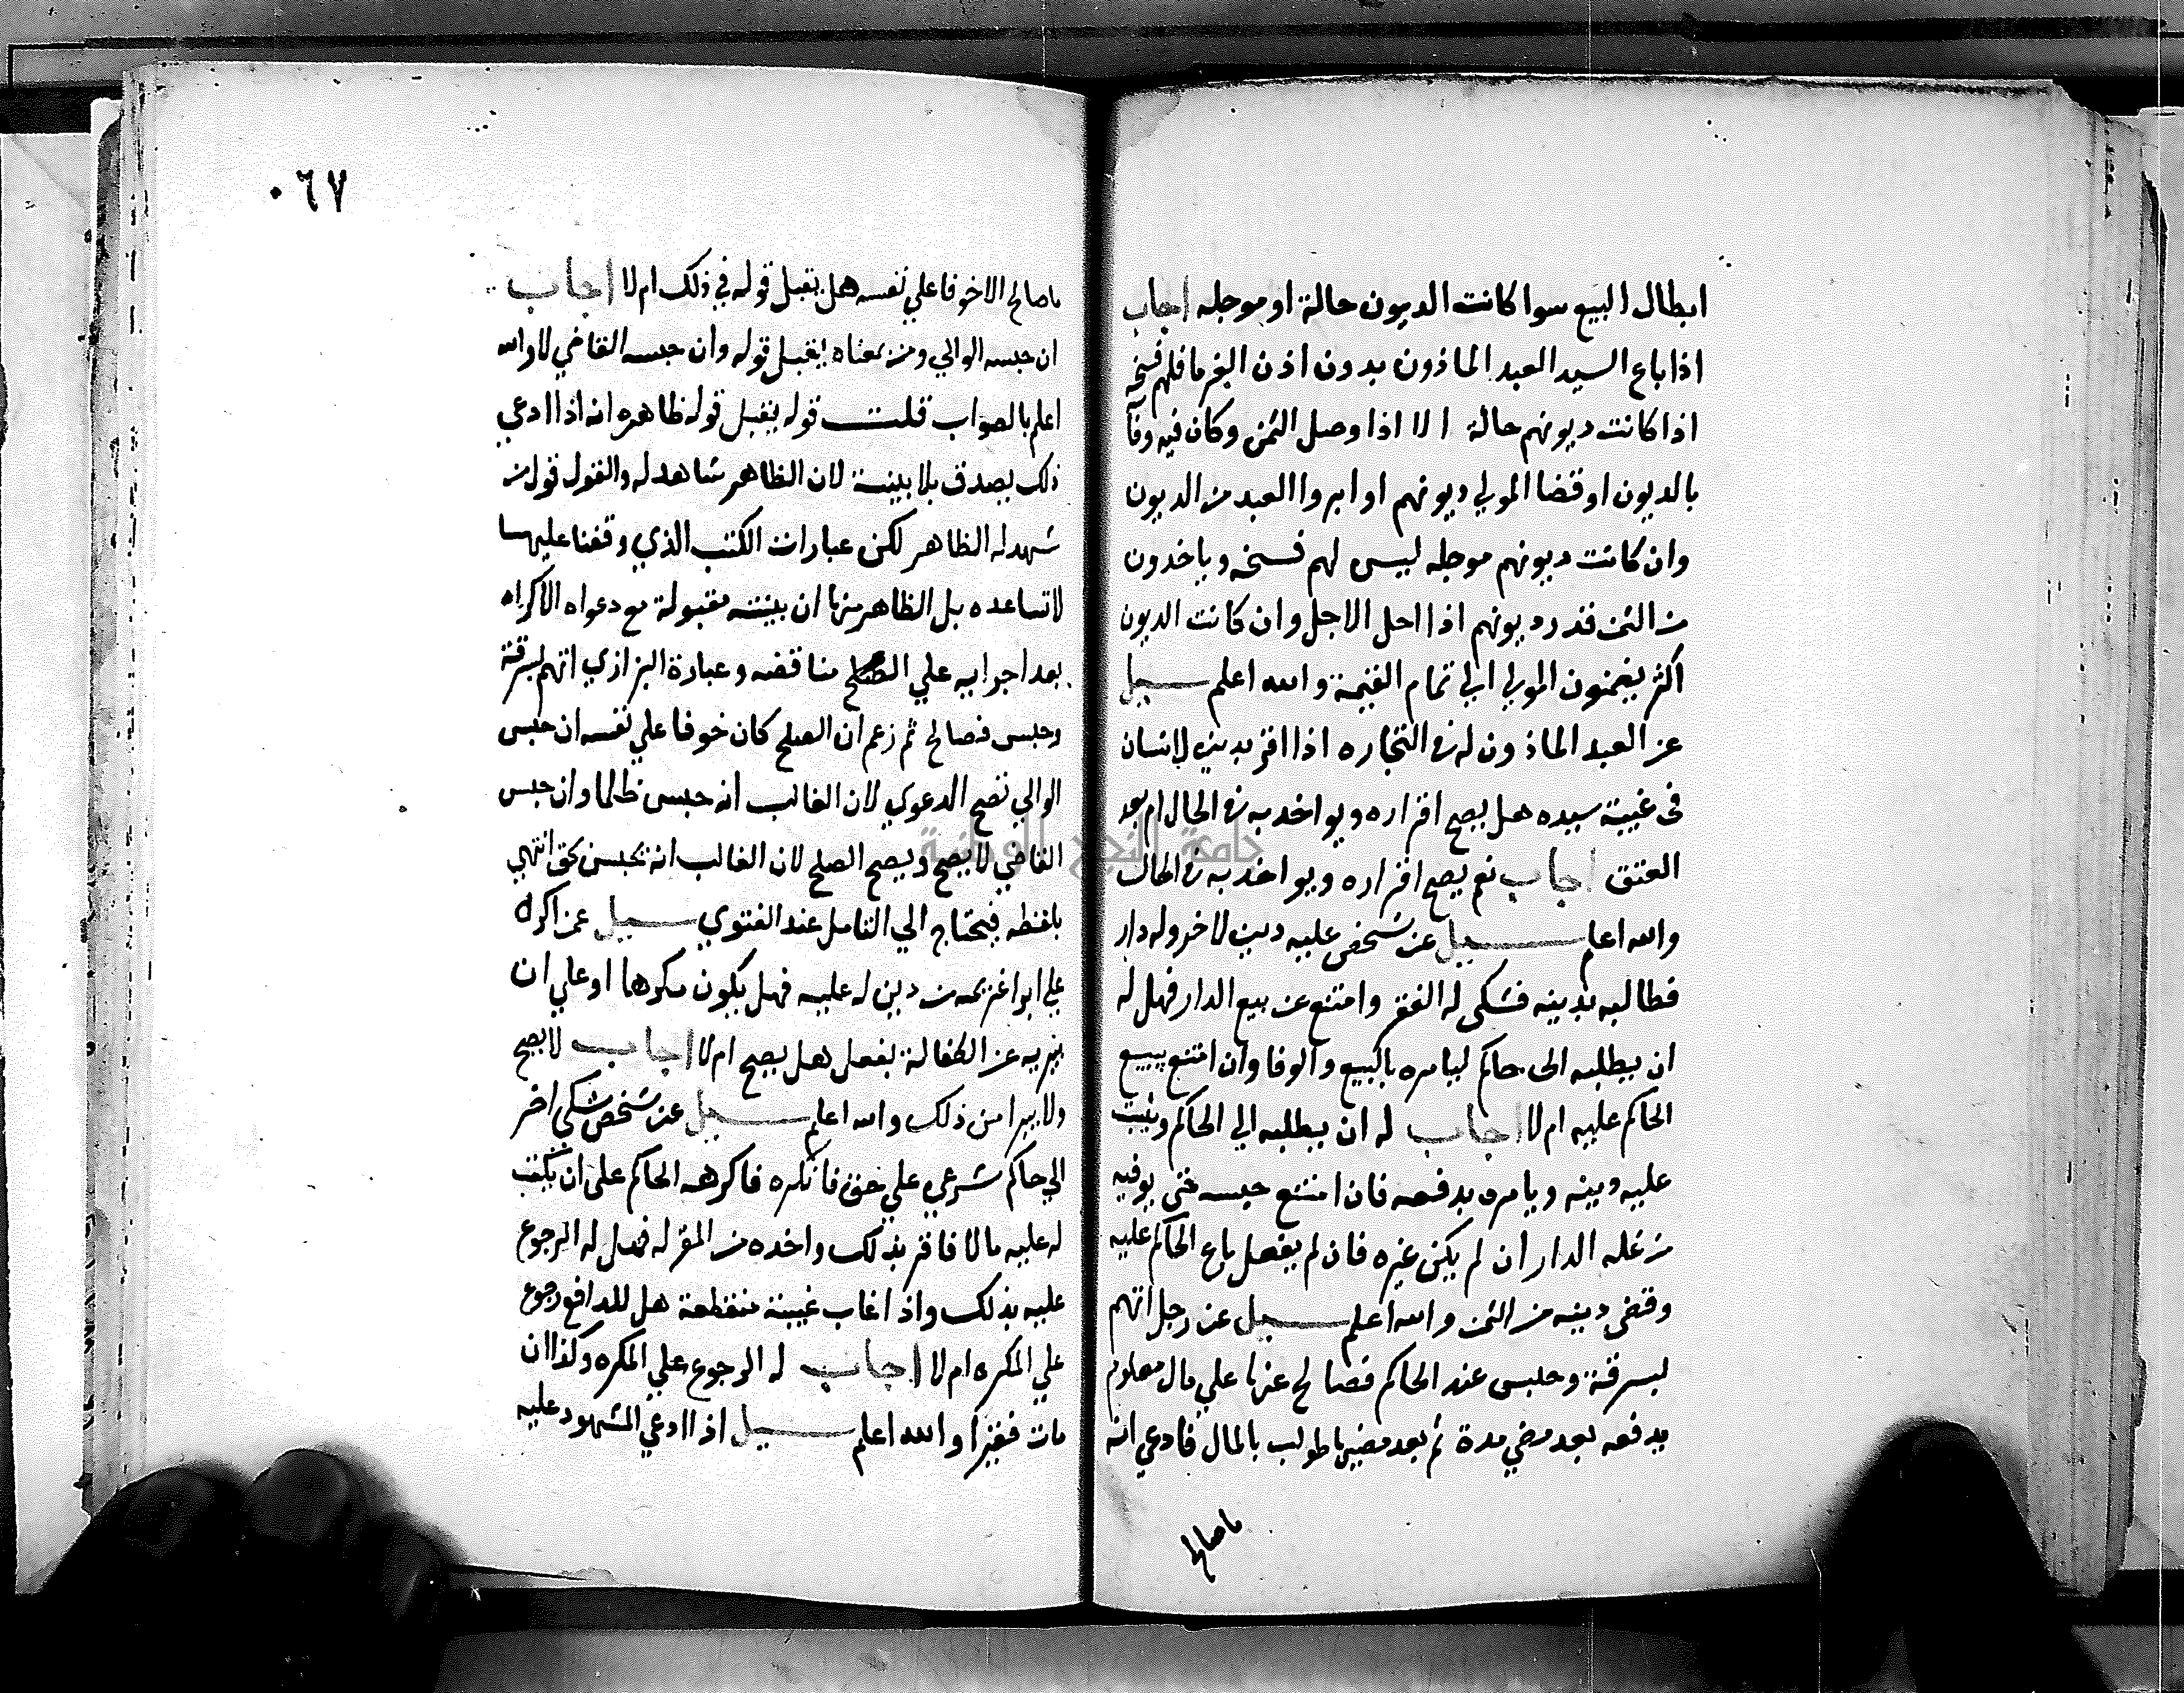 ابطال البيع سوا كانت الديون حالة او موجله اجاب
اذا باع السيد العبد الماذون بدون اذن الغرما فلهم فسخه
اذا كانت ديونهم حالة الا اذا وصل الثمن وكان فيه وفا
بالديون او قضا المولي ديونهم او ابروا العبد من الديون
وان كانت ديونهم موجله ليس لهم فسخه وياخدون
من الثمن قدر ديونهم اذا احل الاجل وان كانت الديون
اكثر يضمنون المولي الي تمام القيمة والله اعلم سيل
عن العبد الماذون له في التجاره اذا اقر بدين لانسان
في غيبة سيده هل يصح اقراره ويواخد به في الحال ام بعد
العتق اجاب نعم يصح اقراره ويواخد به في الحال
والله اعلم سيل عن شخص عليه دين لاخر وله دار
فطالبه بدينه فشكى له الفقر وامتنع عن بيع الدار فهل له
ان يطلبه الى حاكم ليامره بالبيع والوفا وان امتنع يبيع
الحاكم عليه ام لا اجاب له ان يطلبه الي الحاكم ويثبت
عليه دينه ويامره بدفعه فان امتنع حبسه حتى يوفيه
من غله الدار ان لم يكن غيره فان لم يفعل باع الحاكم عليه
وقضى دينه من الثمن والله اعلم سيل عن رجل اتهم
بسرقة وحبس عند الحاكم فصالح عنها علي مال معلوم
يدفعه بعد مضي مدة ثم بعد مضيها طولب بالمال فادعي انه
ما صالح
٠٦٧
ما صالح الا خوفا علي نفسه هل يقبل قوله في ذلك ام لا اجاب
ان حبسه الوالي ومن بمعناه يقبل قوله وان حبسه القاضي لا والله
اعلم بالصواب قلت قوله يقبل قوله ظاهره انه اذا ادعي
ذلك يصدق بلا بينة لان الظاهر شاهد له والقول قول من
شهد له الظاهر لكن عبارات الكتب الذي وقفنا عليها
لا تساعده بل الظاهر منها ان بينته مقبولة مع دعواه الاكراه
بعد اجرايه علي الصلح مناقضه وعبارة البزازي اتهم بسرقة
وحبس فصالح ثم زعم ان الصلح كان خوفا علي نفسه ان حبس
الوالي تصح الدعوي لان الغالب انه حبس ظالما وان حبس
القاضي لا يصح ويصح الصلح لان الغالب انه يحبس بحق انتهي
بلفظه فيحتاج الي التامل عند الفتوي سيل عمن اكره
علي ابرا غريمه من دين له عليه فهل يكون مكرها او علي ان
يبريه عن الكفالة بفعل هل يصح ام لا اجاب لا يصح
ولا يبرا من ذلك والله اعلم سيل عن شخص شكي اخر
الي حاكم شرعي علي حق فانكره فاكرهه الحاكم على ان يكتب
له عليه مالا فاقر بذلك واخده من المقر له فهل له الرجوع
عليه بذلك واذا غاب غيبة منقطعة هل للدافع رجوع
علي المكره ام لا اجاب له الرجوع علي المكره وكذا ان
مات فقيرا والله اعلم سيل اذا ادعي المشهود عليه
جامعة النجاح الوطنية